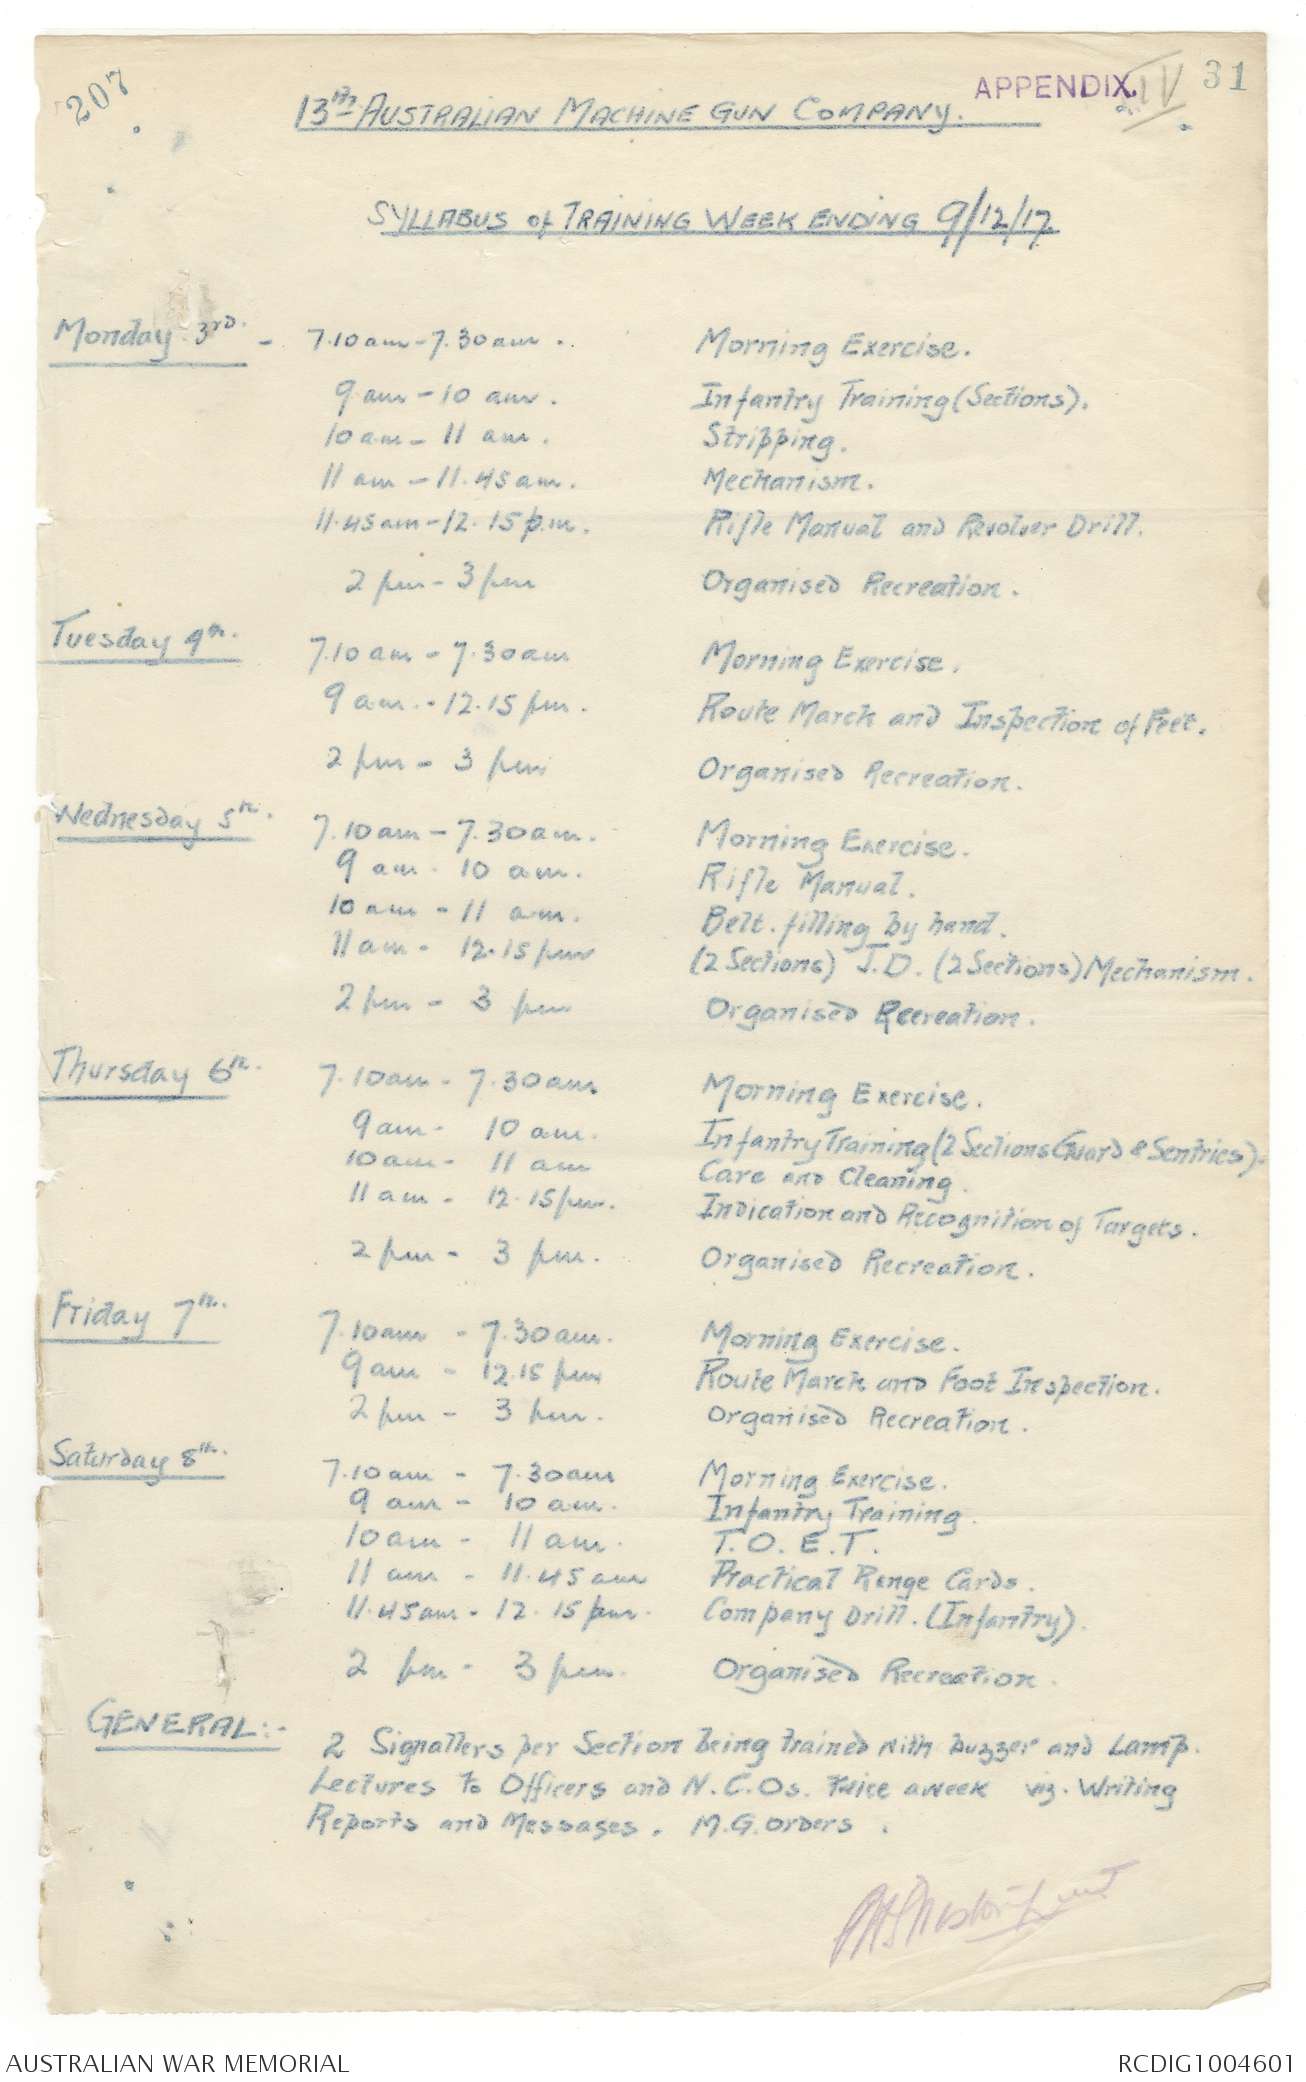 207
APPENDIX. IV 31
13th AUSTRALIAN MACHINE GUN COMPANY.
SYLLABUS of TRAINING WEEK ENDING 9/12/17.
Monday 3rd. - 7.10 am - 7.30 am. Morning Exercise.
9 am - 10 am. Infantry Training (Sections).
10 am - 11 am. Stripping.
11 am - 11.45 am. Mechanism.
11.45 am - 12.15 p.m. Rifle Manual and Revolver Drill.
2 pm - 3 pm Organised Recreation.
Tuesday 4th. 7.10 am - 7.30 am Morning Exercise.
9 am. - 12.15 pm. Route March and Inspection of Feet.
2 pm - 3 pm Organised Recreation.
Wednesday 5th. 7.10 am - 7.30 am. Morning Exercise.
9 am - 10 am. Rifle Manual.
10 am - 11 am. Belt. filling by hand.
11 am - 12.15 pm (2 Sections) I.D. (2 Sections) Mechanism.
2 pm - 3 pm Organised Recreation.
Thursday 6th. 7.10 am - 7.30 am Morning Exercise.
9 am - 10 am. Infantry Training (2 Sections Guard & Sentries).
10 am - 11 am Care and Cleaning.
11 am - 12.15 pm. Indication and Recognition of Targets.
2 pm - 3 pm. Organised Recreation.
Friday 7th. 7.10 am - 7.30 am. Morning Exercise.
9 am - 12.15 pm Route March and Foot Inspection.
2 pm - 3 pm. Organised Recreation.
Saturday 8th. 7.10 am - 7.30 am Morning Exercise.
9 am - 10 am. Infantry Training.
10 am - 11 am. T.O.E.T.
11 am - 11.45 am Practical Range Cards.
11.45 am - 12.15 pm. Company Drill. (Infantry).
2 pm - 3 pm. Organised Recreation.
GENERAL:- 2 Signallers per Section being trained with buzzer and Lamp.
Lectures to Officers and N.C.Os. twice a week viz. Writing
Reports and Messages. M.G. orders.
AUSTRALIAN WAR MEMORIAL RCDIG1004601